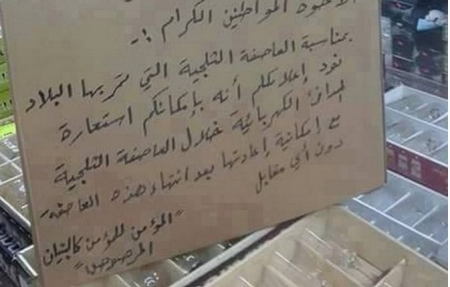 الأخوة المواطنين الكرام :-
بمناسبة العاصفة الثلجية التي تمر بها البلاد
نود إعلامكم أنه بإمكانكم استعارة
المدافئ الكهربائية خلال العاصفة الثلجية
مع إمكانية إعادتها بعد انتهاء هذه العاصفة
دون أي مقابل
"المؤمن للمؤمن كالبنيان
المرصوص"